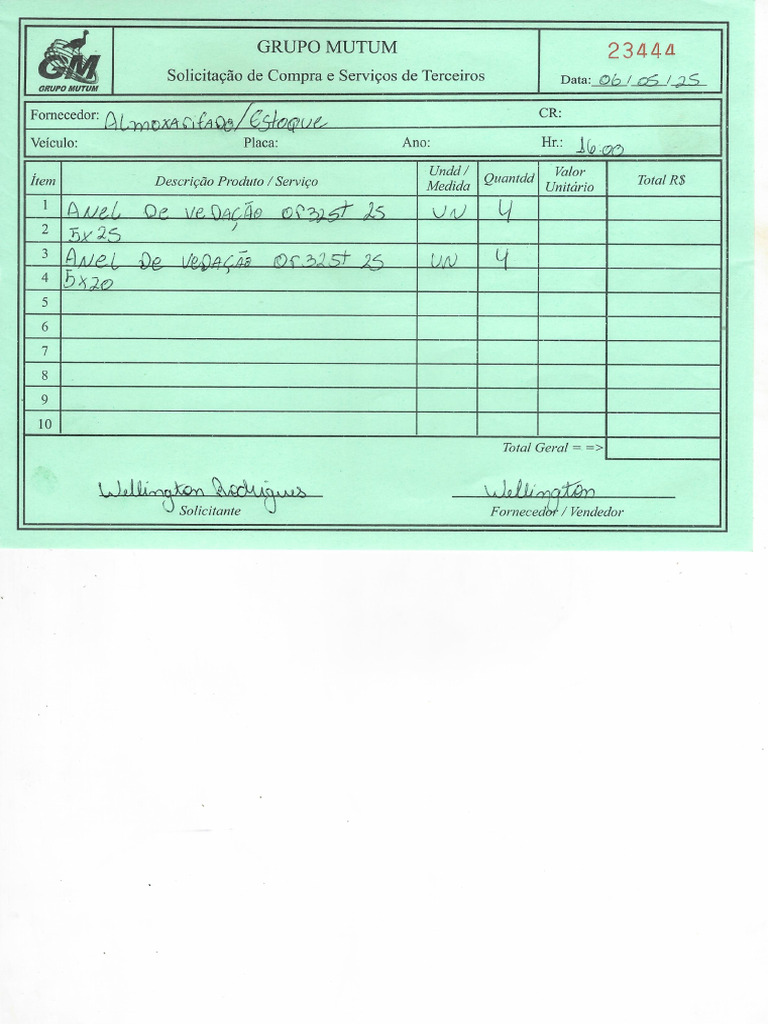 GRUPO MUTUM
23444
Solicitação de Compra e Serviços de Terceiros
GM
GRUPO MUTUM
Data: 06/05/25
Fornecedor: Almoxarifado/Estoque CR:
Veículo: Placa: Ano: Hr.: 16:00
Ítem Descrição Produto / Serviço Undd / Medida Quantdd Valor Unitário Total R$
1 ANEL DE VEDAÇÃO OF325t 25 UN 4
2 5x25
3 ANEL DE VEDAÇÃO OF325t 25 UN 4
4 5x20
5
6
7
8
9
10
Total Geral = =>
Wellington Rodrigues Wellington
Solicitante Fornecedor / Vendedor